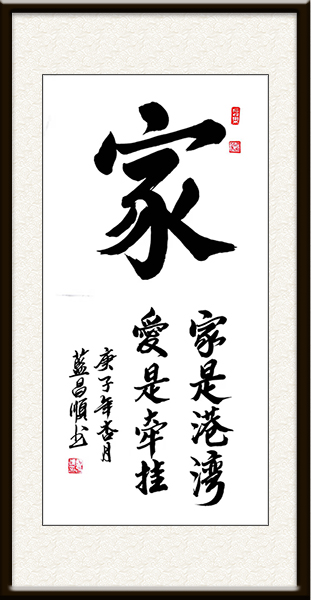 家
家是港湾
愛是牽挂
庚子年杏月
藍昌順书